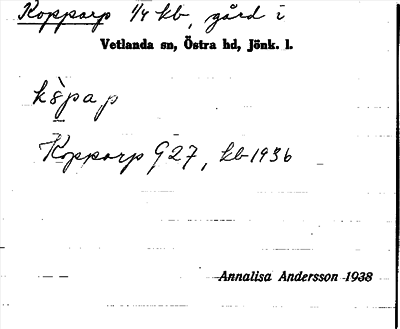 Kopparp 1/4 kb, gård i
Vetlanda sn, Östra hd, Jönk. l.
kòpap
Kopparp G27, kb 1936
Annalisa Andersson 1938